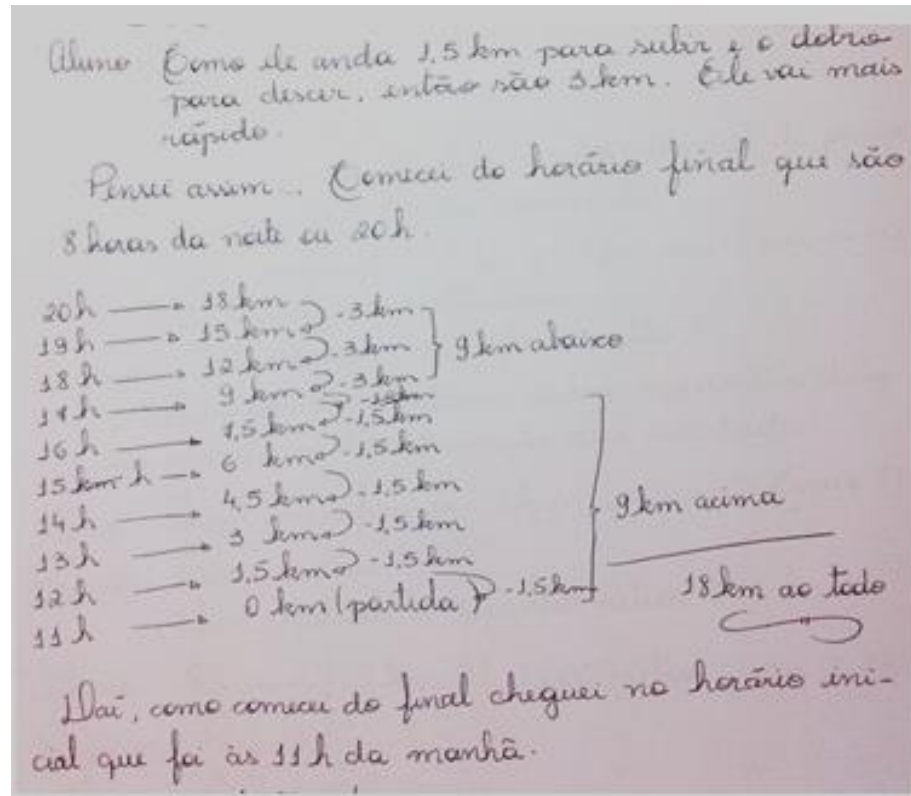 Aluno Como ele anda 1,5 km para subir e o dobro
para descer, então são 3 km. Ele vai mais
rápido.
Pensei assim... Comecei do horário final que são
8 horas da noite ou 20h.
20h → 18 km -3km
19h → 15 km -3km
18h → 12 km -3km
9 km abaixo
17h → 9 km
16h → 7,5 km -1,5km
15 h → 6 km -1,5 km
14h → 4,5 km -1,5 km
13h → 3 km -1,5 km
12h → 1,5 km -1,5 km
11h → 0 km (partida) -1,5km
9 km acima
18 km ao todo
Daí, como comecei do final cheguei no horário ini-
cial que foi às 11h da manhã.